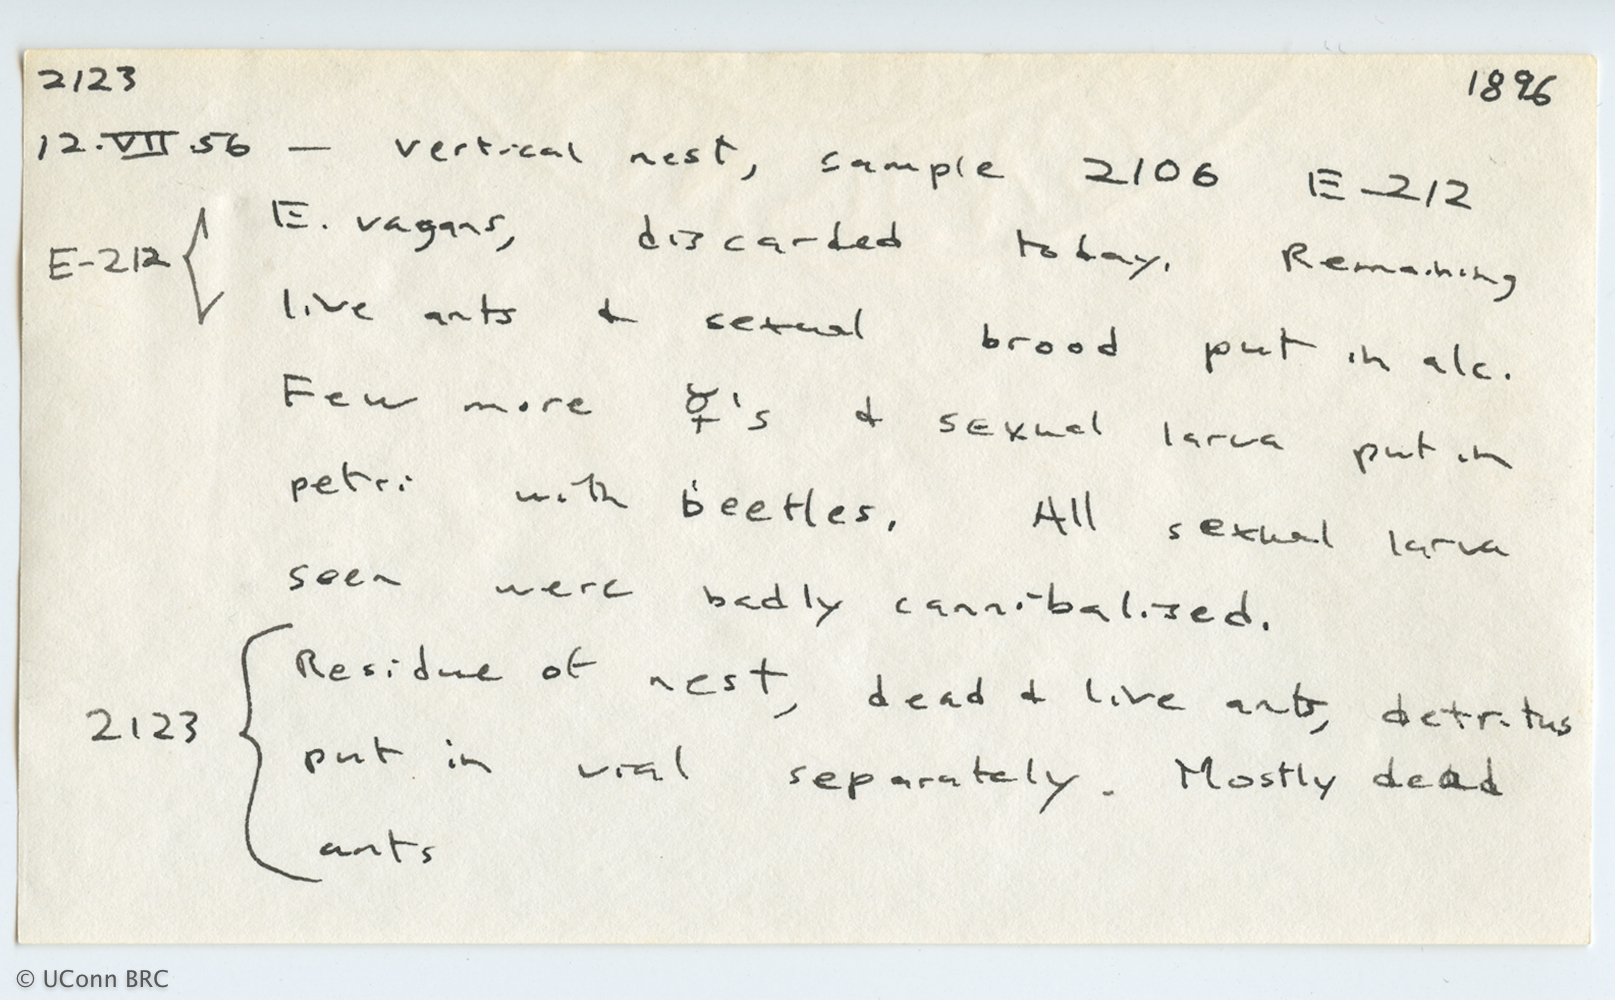 2123 1896
12.VII.56 — vertical nest, sample 2106 E-212
E-212 { E. vagans, discarded today. Remaining
live ants & sexual brood put in alc.
Few more ☿'s & sexual larva put in
petri with beetles. All sexual larva
seen were badly cannibalized.
Residue of nest, dead & live ants, detritus
2123 { put in vial separately. Mostly dead
ants
© UConn BRC